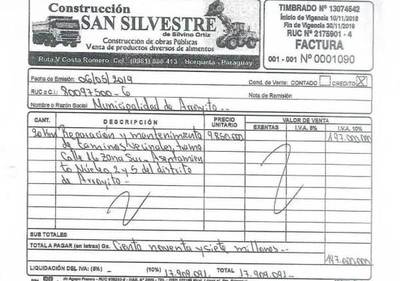 Construcción
SAN SILVESTRE
de Silvino Ortiz
Construcción de obras Públicas
Venta de productos diversos de alimentos
Ruta V Costa Romero. Cel: (0981) 880 413 - Horqueta - Paraguay
TIMBRADO Nº 13074642
Inicio de Vigencia 10/11/2018
Fin de Vigencia 30/11/2019
RUC Nº 2175901 - 4
FACTURA
001 - 001 Nº 0001090
Fecha de Emisión: 06/05/2019
Cond. de Venta: CONTADO CREDITO X
RUC o C.I.: 80097500-6
Nota de Remisión
Nombre o Razón Social: Municipalidad de Arroyito
CANT. DESCRIPCIÓN PRECIO UNITARIO VALOR DE VENTA
EXENTAS I.V.A. 5% I.V.A. 10%
20 Reparación y mantenimiento 9.850.000 197.000.000
de caminos vecinales, tramo
Calle 16 zona Sur - Asentamien
to Núcleo 2 y 5 del distrito
de Arroyito
SUB TOTALES
TOTAL A PAGAR (en letras) Gs. Ciento noventa y siete millones.- 197.000.000
LIQUIDACIÓN DEL IVA: (5%) (10%) 17.909.091.- TOTAL IVA: 17.909.091.-